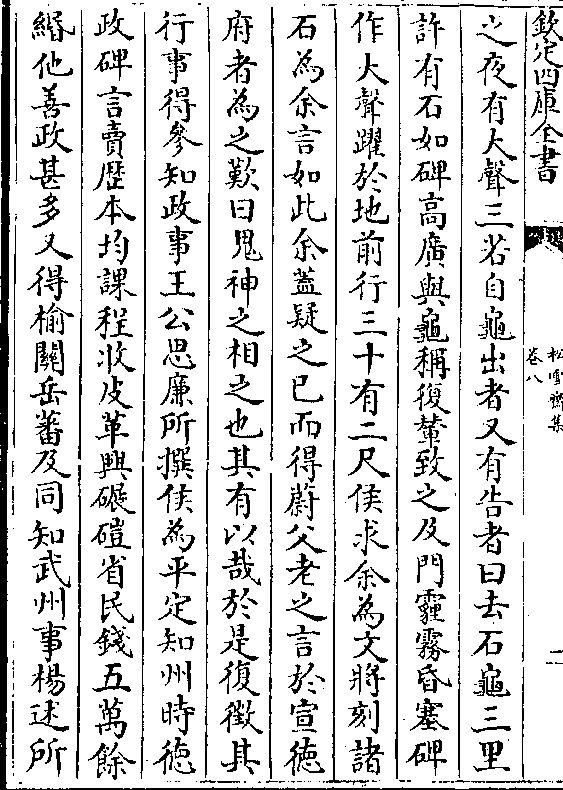 欽定四庫全書
松雪齋集
卷八
二
之夜有大聲三若自龜出者又有告者曰去石龜三里
許有石如碑高廣與龜稱復輦致之及門霾霧昏塞碑
作大聲躍於地前行三十有二尺侯求余為文將刻諸
石為余言如此余蓋疑之已而得蔚父老之言於宣徳
府者為之歎曰鬼神之相之也其有以哉於是復徴其
行事得參知政事王公思廉所撰侯為平定知州時徳
政碑言賣歴本均課程收皮革興碾磑省民錢五萬餘
緡他善政甚多又得榆關岳蕃及同知武州事楊述所